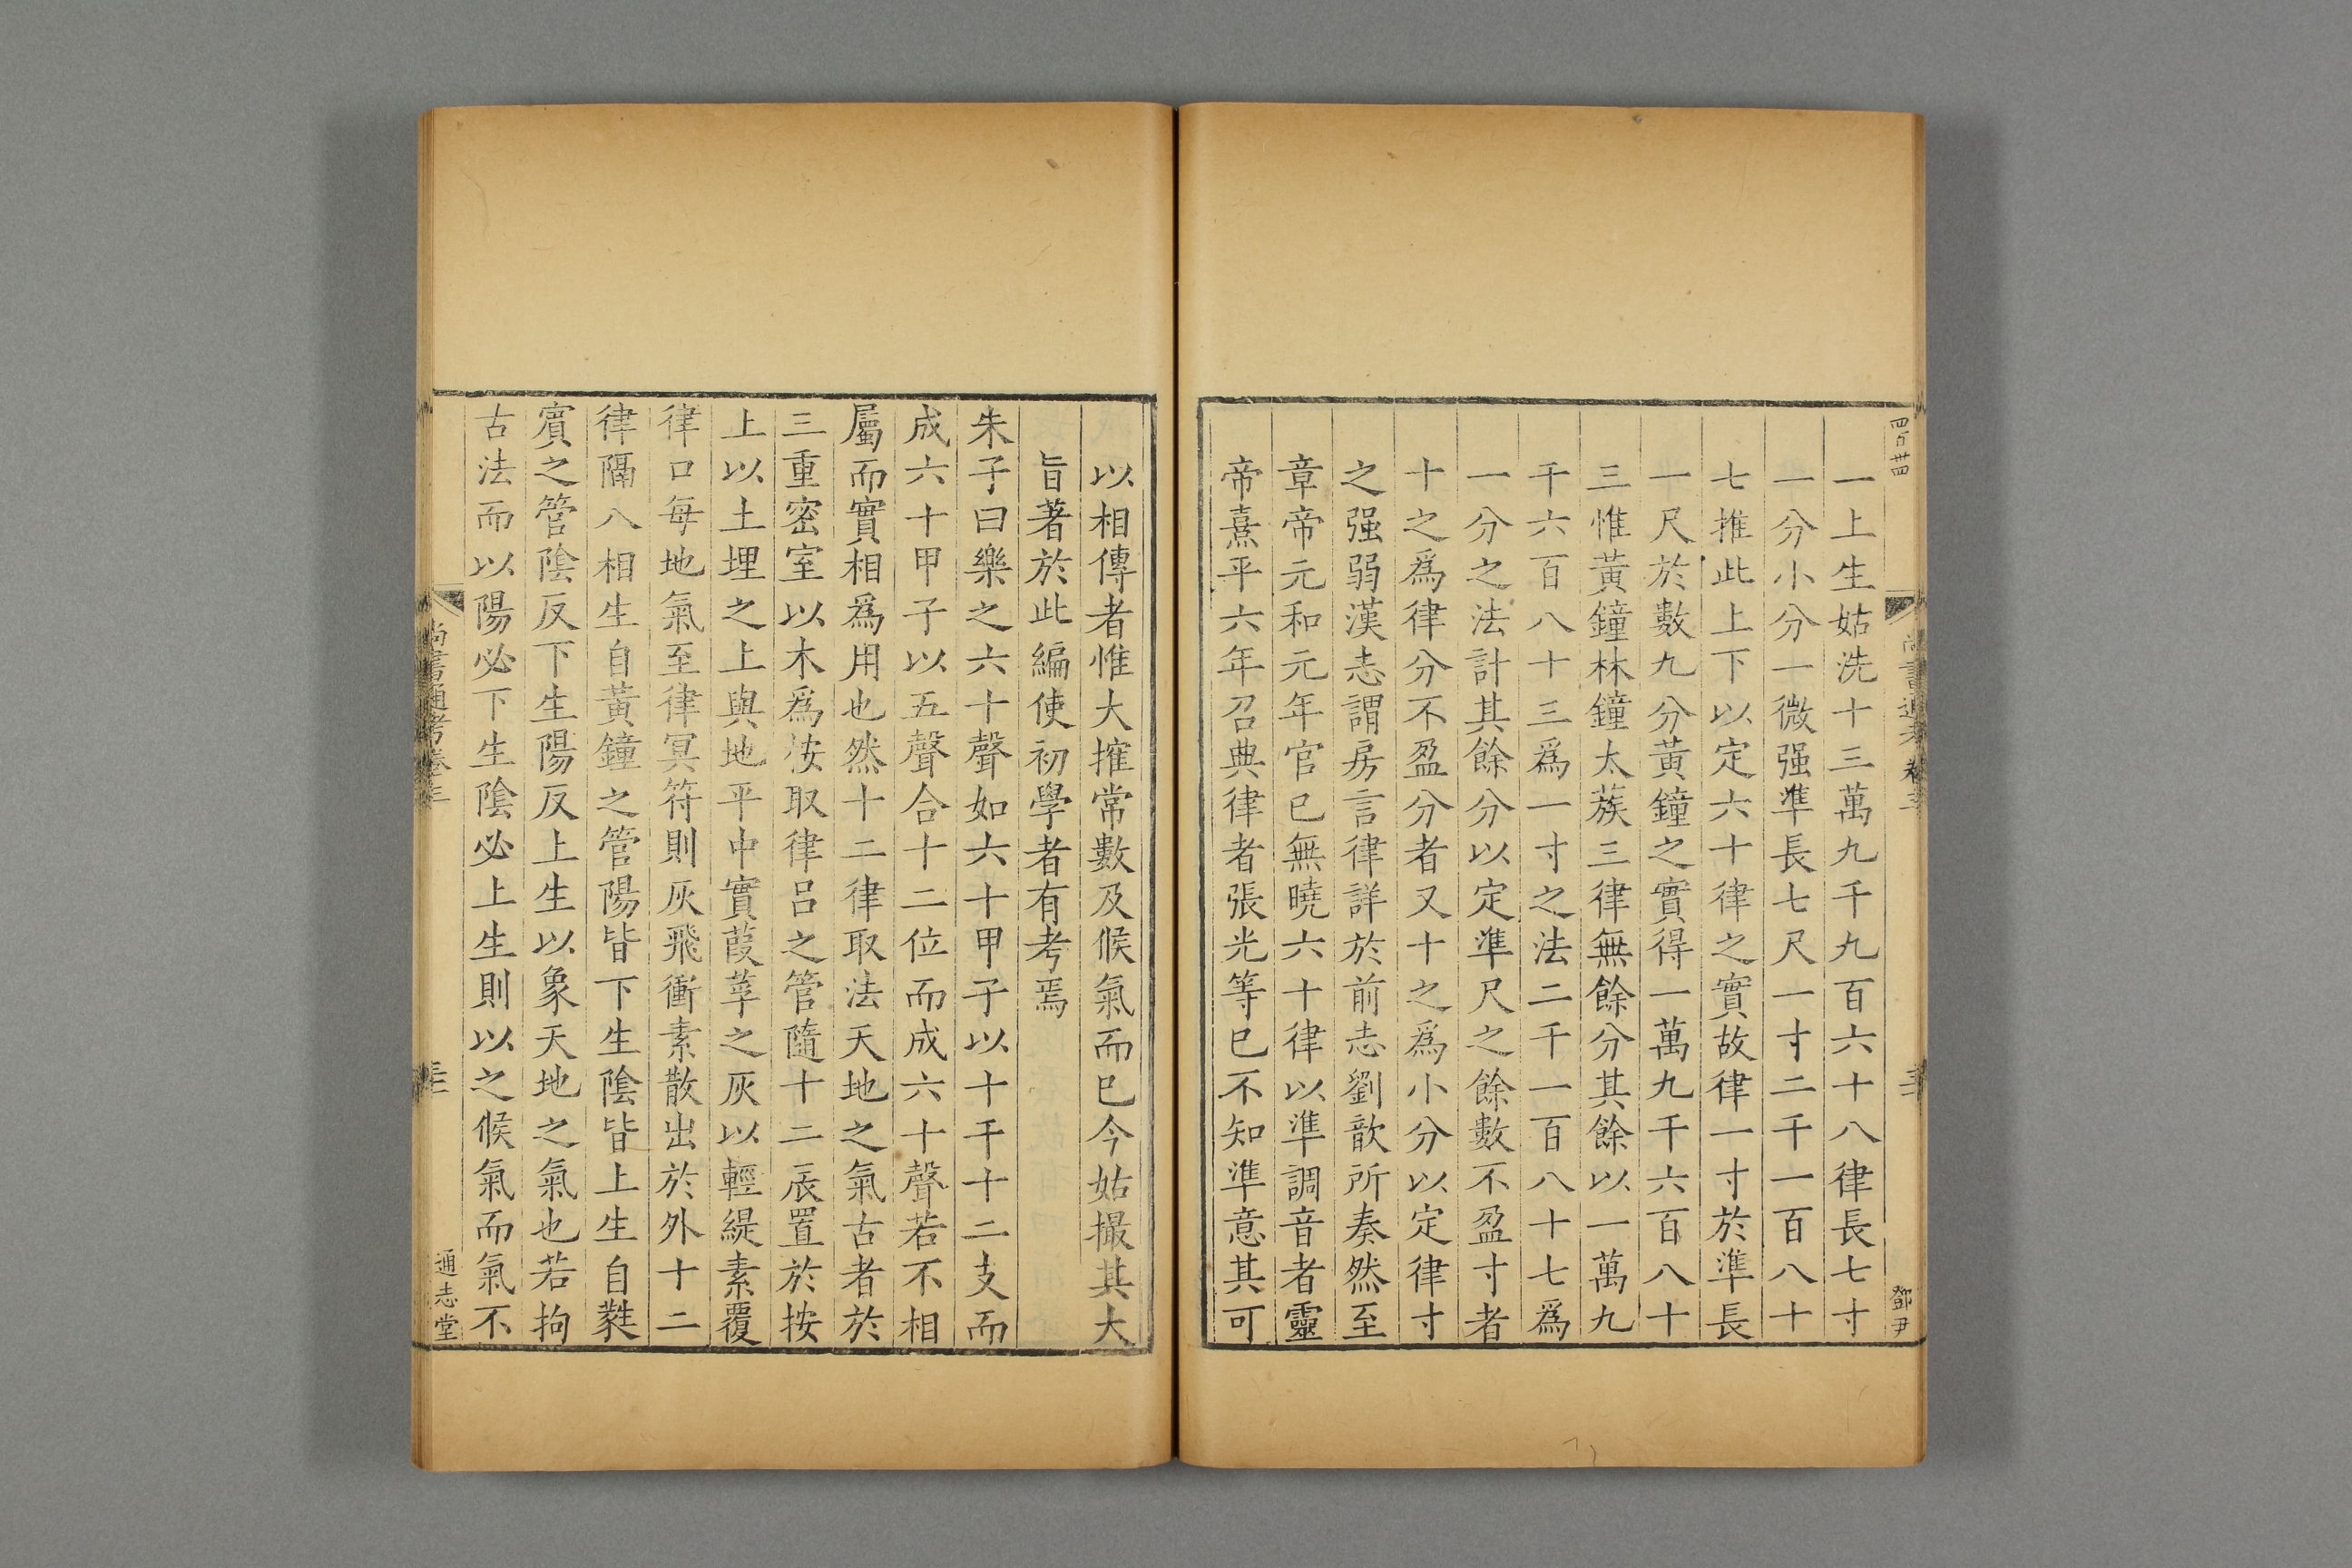 一上生姑洗十三萬九千九百六十八律長七寸
一分小分一微强準長七尺一寸二千一百八十
七推此上下以定六十律之實故律一寸於準長
一尺於數九分黃鐘之實得一萬九千六百八十
三惟黃鐘林鐘太蔟三律無餘分其餘以一萬九
千六百八十三爲一寸之法二千一百八十七爲
一分之法計其餘分以定準尺之餘數不盈寸者
十之爲律分不盈分者又十之爲小分以定律寸
之强弱漢志謂房言律詳於前志劉歆所奏然至
章帝元和元年官已無曉六十律以準調音者靈
帝熹平六年召典律者張光等已不知準意其可
以相傳者惟大搉常數及候氣而已今姑撮其大
旨著於此編使初學者有考焉
朱子曰樂之六十聲如六十甲子以十干十二支而
成六十甲子以五聲合十二位而成六十聲若不相
屬而實相爲用也然十二律取法天地之氣古者於
三重密室以木爲洝取律呂之管隨十二辰置於按
上以土埋之上與地平中實葭莩之灰以輕緹素覆
律口每地氣至律冥符則灰飛衝素散出於外十二
律隔八相生自黃鐘之管陽皆下生陰皆上生自蕤
賓之管陰反下生陽反上生以象天地之氣也若拘
古法而以陽必下生陰必上生則以之候氣而氣不
尚書通考卷三
通志堂
鄧尹